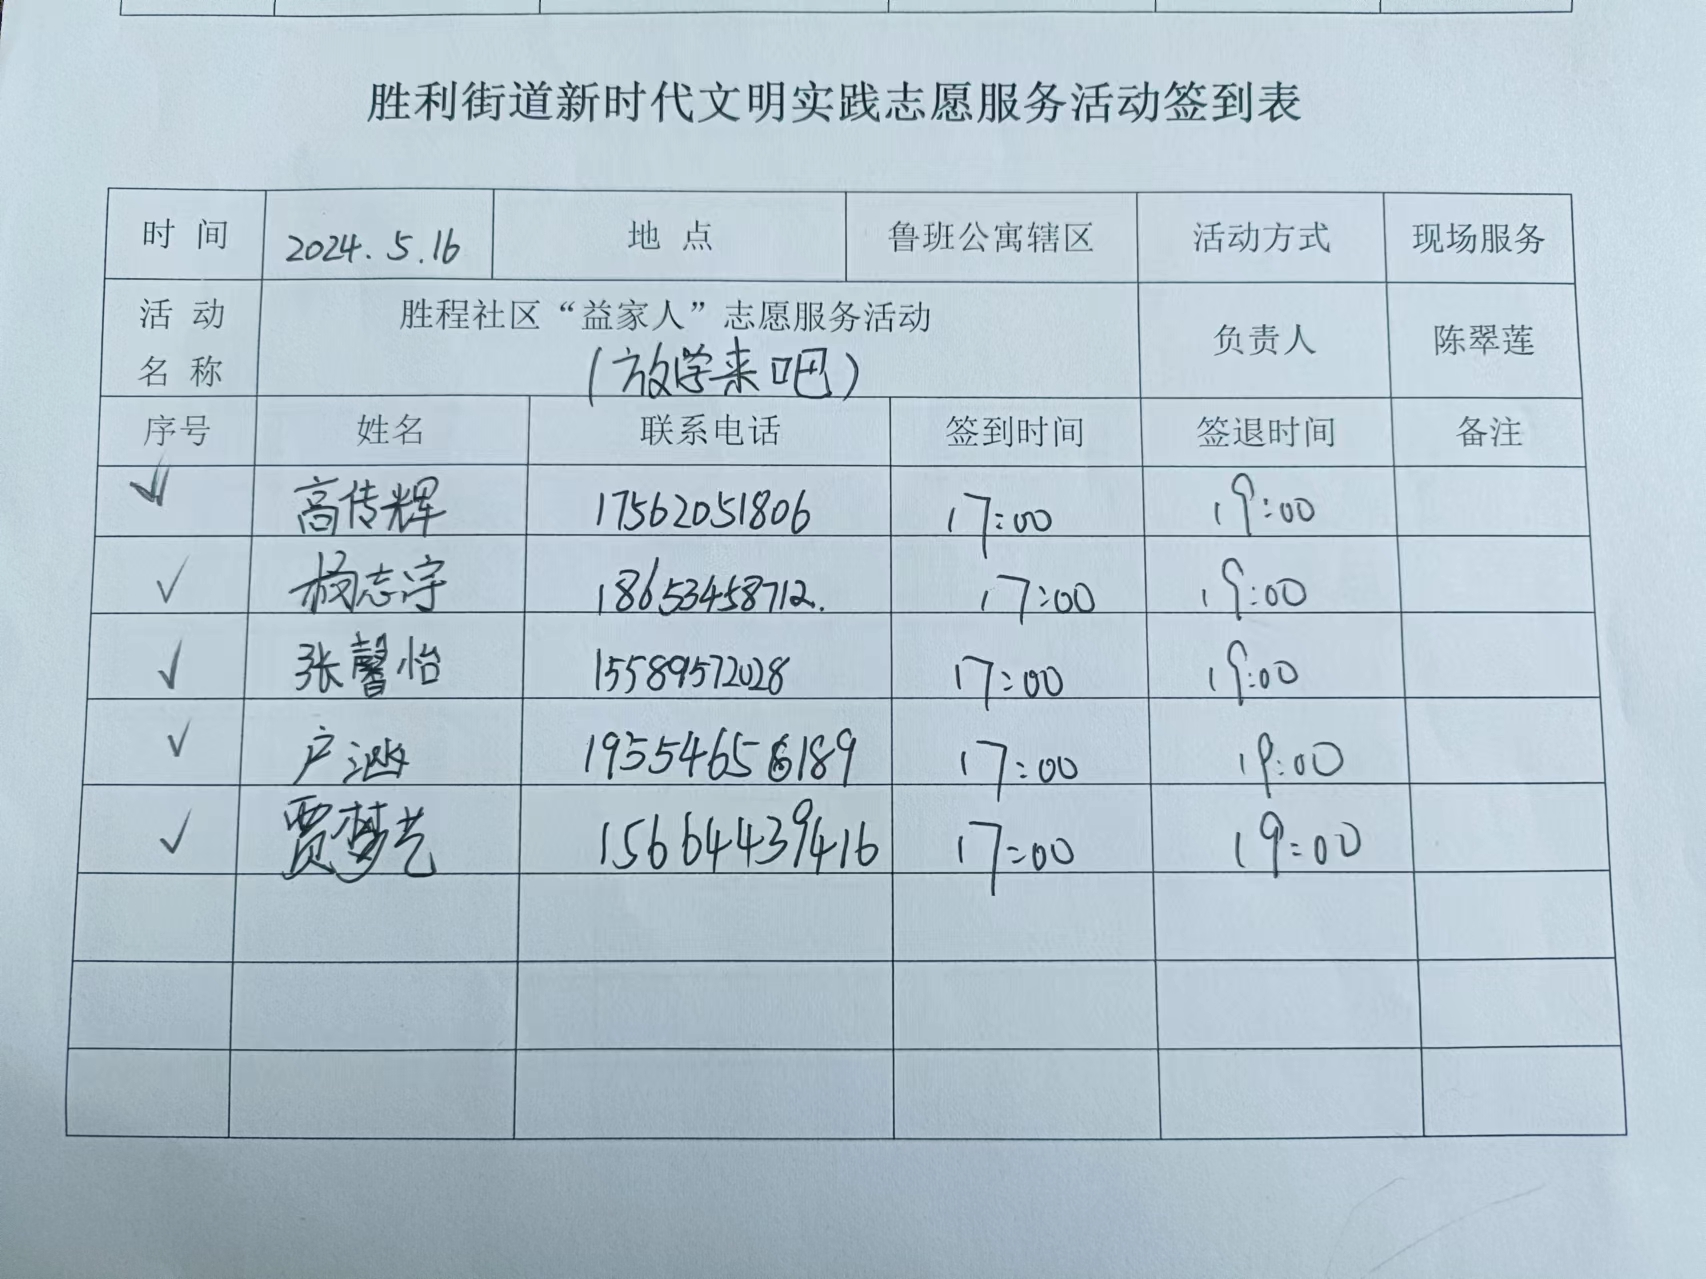 胜利街道新时代文明实践志愿服务活动签到表
时 间 2024.5.16 地 点 鲁班公寓辖区 活动方式 现场服务
活 动 名 称 胜程社区“益家人”志愿服务活动 负责人 陈翠莲
(放学来吧)
序号 姓名 联系电话 签到时间 签退时间 备注
✓ 高传辉 17562051806 17:00 19:00
✓ 杨志宇 18653458712. 17:00 19:00
✓ 张馨怡 15589572028 17:00 19:00
✓ 户 19554656189 17:00 19:00
✓ 贾梦艺 15664439416 17:00 19:00